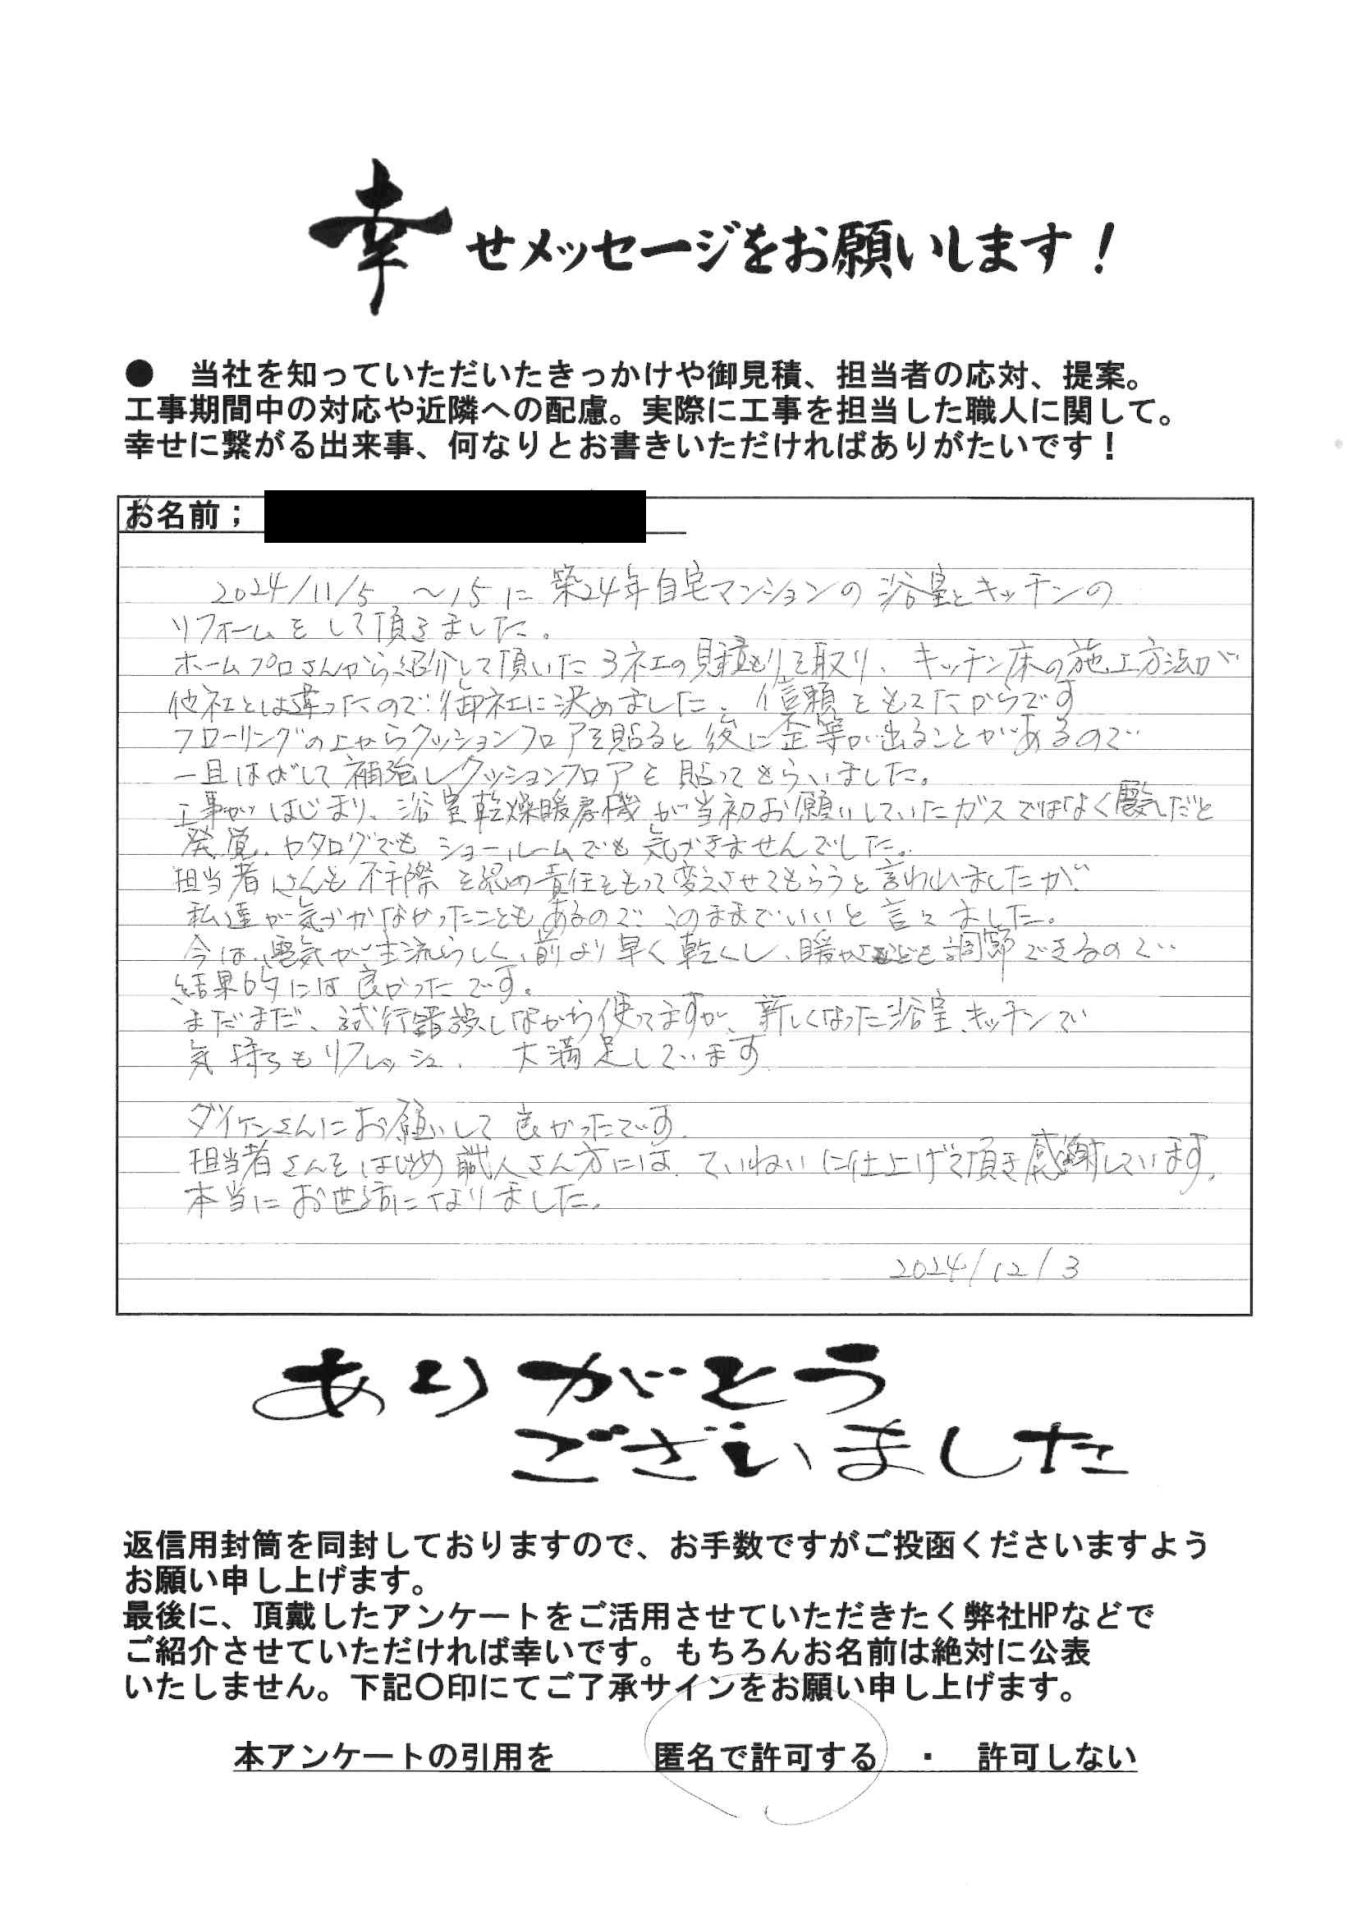 幸せメッセージをお願いします！
● 当社を知っていただいたきっかけや御見積、担当者の応対、提案。
工事期間中の対応や近隣への配慮。実際に工事を担当した職人に関して。
幸せに繋がる出来事、何なりとお書きいただければありがたいです！
お名前；
2024/11/5 〜15に 築24年自宅マンションの浴室とキッチンの
リフォームをして頂きました。
ホームプロさんから紹介して頂いた3社の見積もりを取り、キッチン床の施工方法が
他社とは違ったので御社に決めました。信頼をもてたからです
フローリングの上からクッションフロアを貼ると後に歪等が出ることがあるので
一旦はがして補強しクッションフロアを貼ってもらいました。
工事がはじまり、浴室乾燥暖房機が当初お願いしていたガスではなく電気だと
発覚、カタログでもショールームでも気づきませんでした。
担当者さんも不手際を認め責任をもって変えさせてもらうと言われいましたが、
私達が気づかなかったこともあるのでこのままでいいと言えました。
今は、電気が主流らしく、前より早く乾くし、暖かさなども調節できるので
結果的には良かったです。
まだまだ、試行錯誤しながら使ってますが、新しくなった浴室、キッチンで
気持ちもリフレッシュ、大満足しています
ダイケンさんにお願いして良かったです。
担当者さんをはじめ職人さん方には、ていねいに仕上げて頂き感謝しています。
本当にお世話になりました。
2024/12/3
ありがとう
ございました
返信用封筒を同封しておりますので、お手数ですがご投函くださいますよう
お願い申し上げます。
最後に、頂戴したアンケートをご活用させていただきたく弊社HPなどで
ご紹介させていただければ幸いです。もちろんお名前は絶対に公表
いたしません。下記〇印にてご了承サインをお願い申し上げます。
本アンケートの引用を 匿名で許可する ・ 許可しない